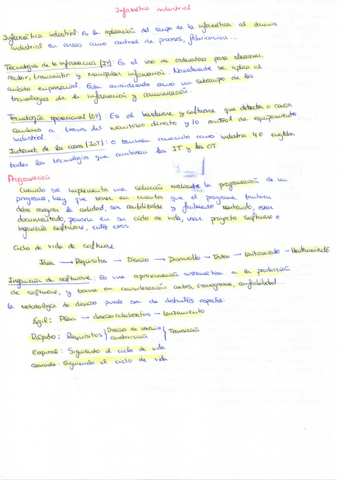 Informática industrial
Informática industrial: Es la aplicación del campo de la informática al dominio
industrial en áreas como control de procesos, fabricación...
Tecnologías de la información (IT): Es el uso de ordenadores para almacenar,
recibir, transmitir y manipular información. Normalmente se aplica al
ámbito empresarial. Está considerado como un subcampo de las
tecnologías de la información y comunicación.
Tecnología operacional (OT): Es el hardware y software que detecta o causa
cambios a través del monitoreo directo y/o control de equipamiento
industrial.
Internet de las cosas (IoT): o también conocido como industria 4.0 engloba
todas las tecnologías que combinan las IT y las OT
Programación
Cuando se implementa una solución mediante la programación de un
programa, hay que tener en cuenta que el programa también
debe asegurar la calidad, ser confiable y fácilmente testeado, estar
documentado, pensar en su ciclo de vida, usar proyecto software e
ingeniería software, entre otros
Ciclo de vida de software
Idea → Requisitos → Diseño → Desarrollo → Testeo → Lanzamiento → Mantenimiento
Ingeniería de software: Es una aproximación sistemática a la producción
de software, y toma en consideración costes, cronograma, confiabilidad...
La metodología de diseño puede ser de distintos aspectos:
Ágil: Plan → desarrollo → lanzamiento
Rápido: Requisitos { Diseño de usuario construcción } Transición
Espiral: Siguiendo el ciclo de vida
cascada: Siguiendo el ciclo de vida